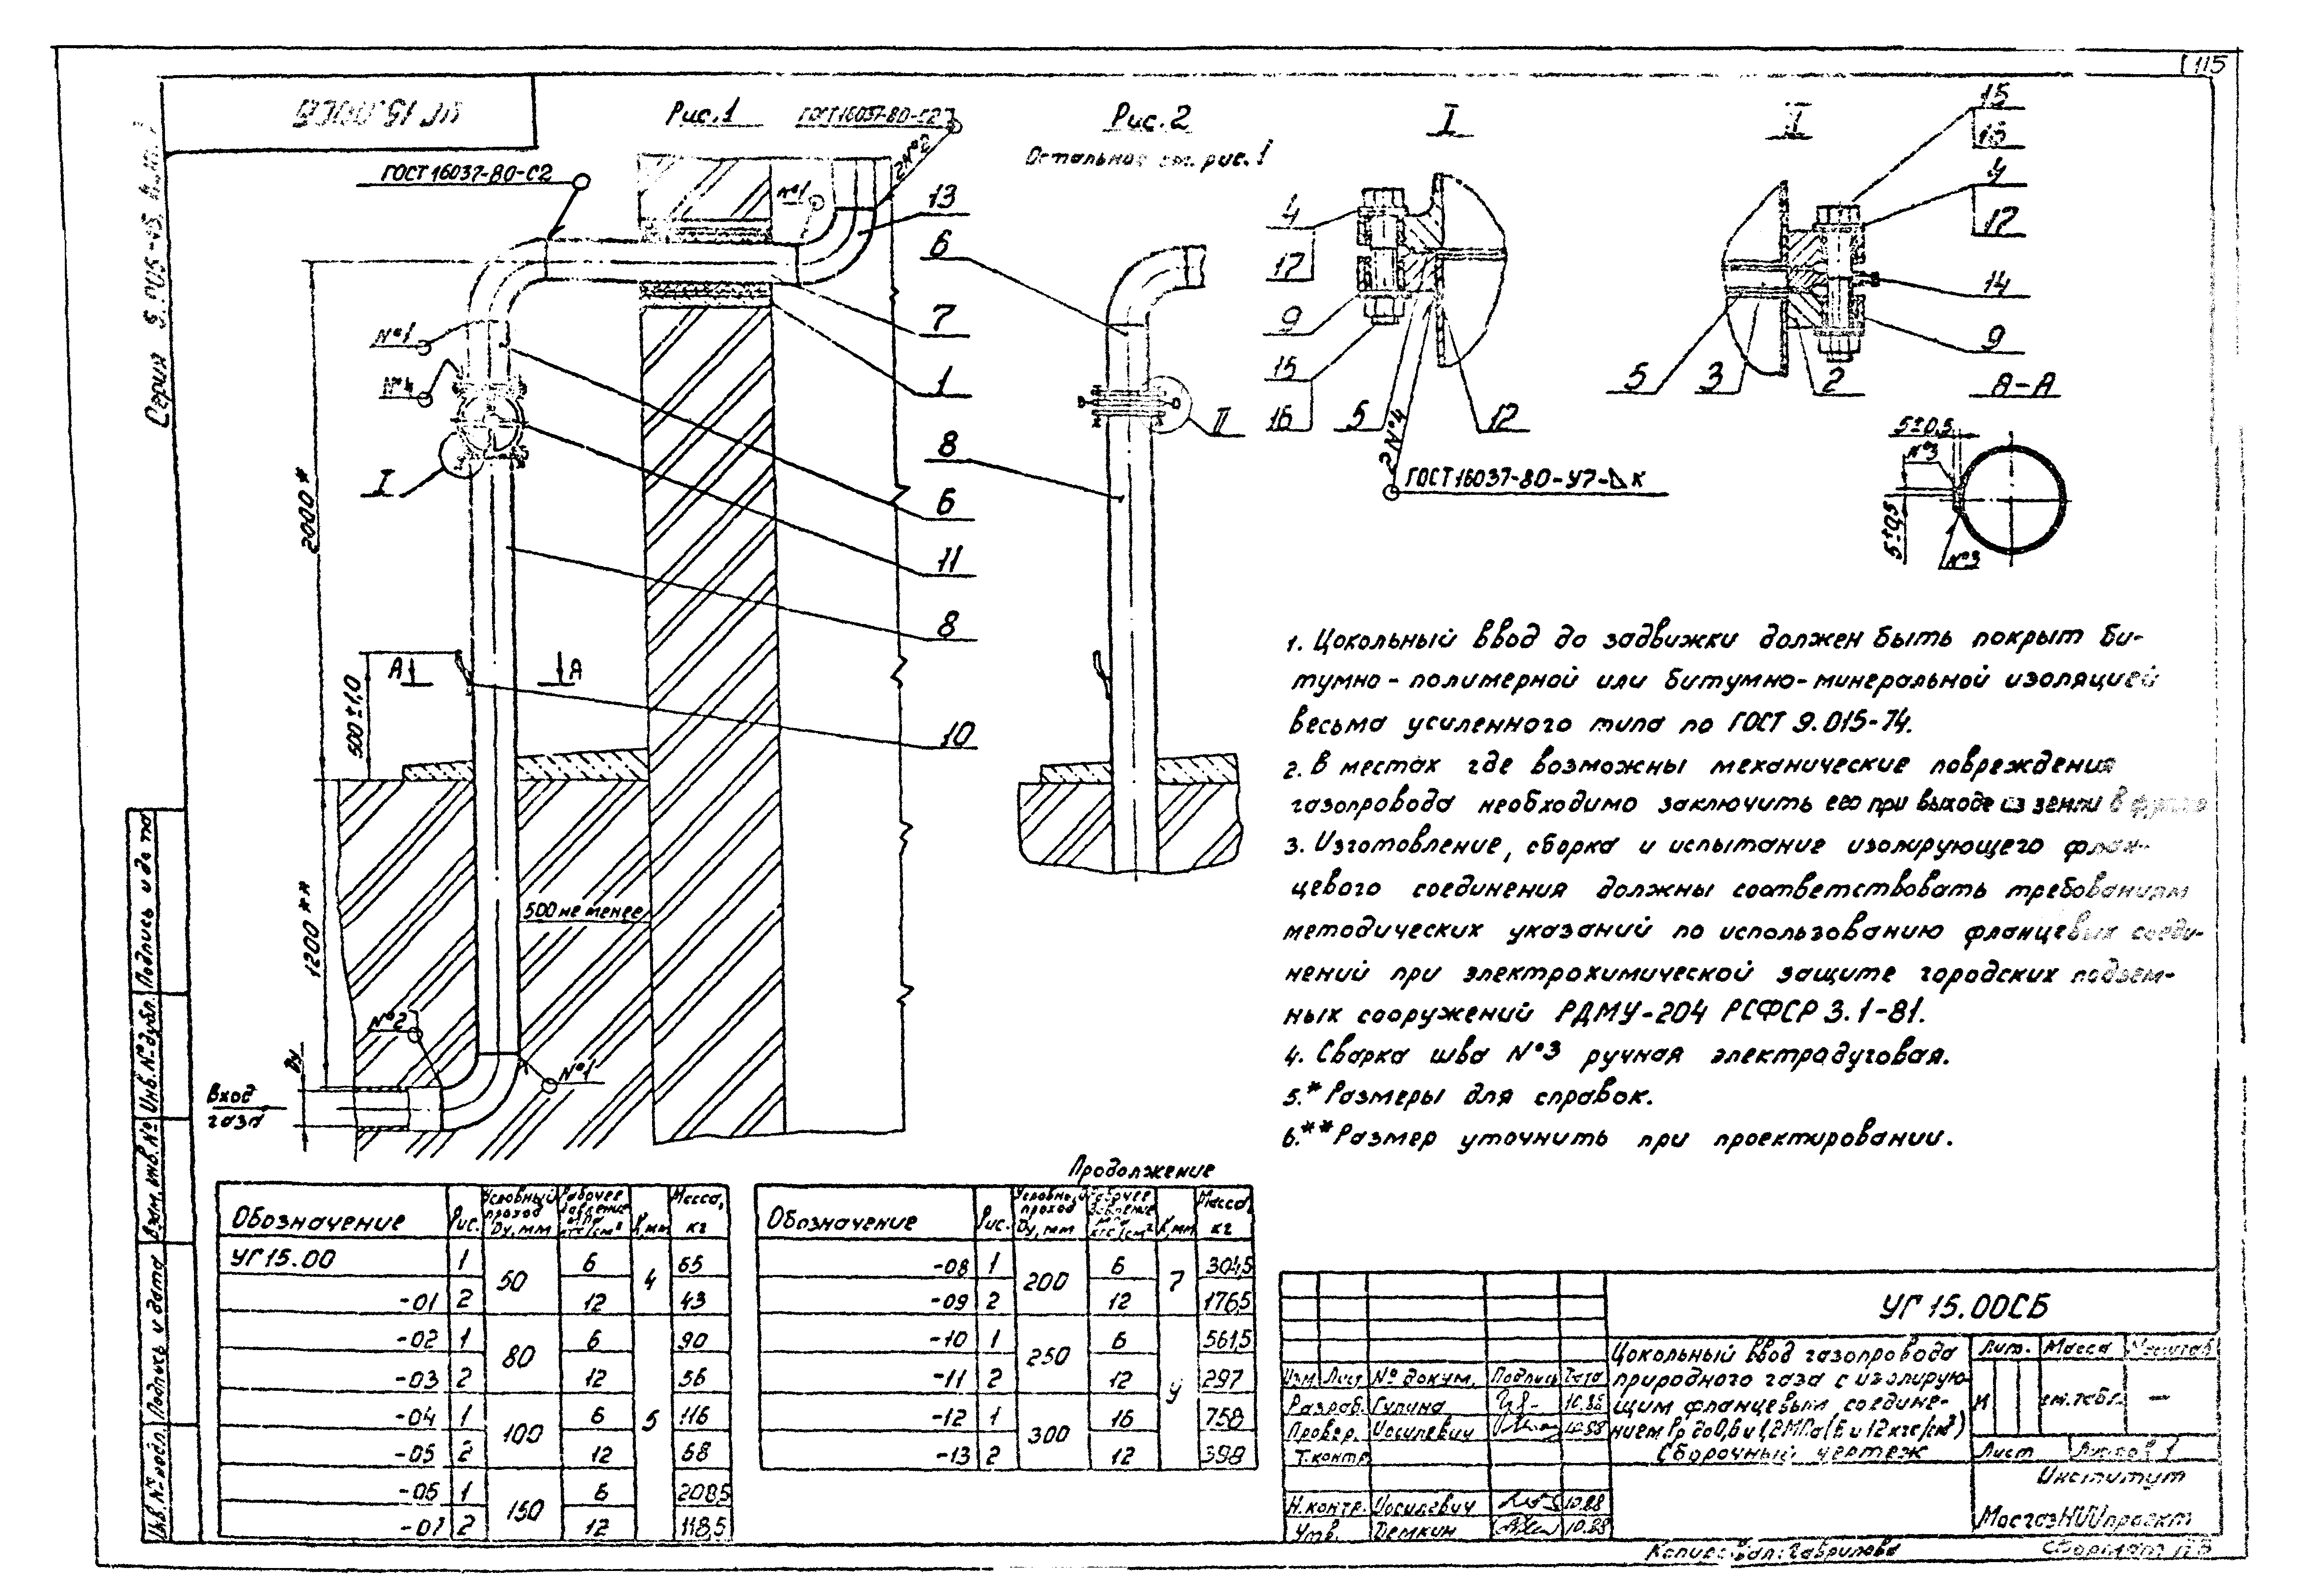 115
УГ 15.00СБ
Серия 5.905-15
Рис.1
ГОСТ16037-80-С2
Рис.2
Остальное см. рис.1
I
II
ГОСТ16037-80-С2
№1
2№2
13
6
7
1
6
11
8
10
№1
№4
I
2000*
500±1,0
А
А
1200**
500 не менее
№2
№1
Ду
Вход
газа
8
II
4
17
9
15
16
5
12
2№4
ГОСТ16037-80-У7-⊿К
15
16
4
17
14
9
5
3
2
А-А
5±0,5
№3
5±0,5
№3
1. Цокольный ввод до задвижки должен быть покрыт би-
тумно-полимерной или битумно-минеральной изоляцией
весьма усиленного типа по ГОСТ 9.015-74.
2. В местах где возможны механические повреждения
газопровода необходимо заключить его при выходе из земли в
3. Изготовление, сборка и испытание изолирующего флан-
цевого соединения должны соответствовать требованиям
методических указаний по использованию фланцевых соеди-
нений при электрохимической защите городских подзем-
ных сооружений РДМУ-204 РСФСР 3.1-81.
4. Сварка шва №3 ручная электродуговая.
5.* Размеры для справок.
6.** Размер уточнить при проектировании.
Продолжение
Обозначение Рис. Условный проход Ду, мм Рабочее давление кгс/см² К, мм Масса, кг
УГ15.00 1 50 6 4 65
-01 2 12 43
-02 1 80 6 5 90
-03 2 12 56
-04 1 100 6 116
-05 2 12 68
-06 1 150 6 208,5
-07 2 12 118,5
Обозначение Рис. Условный проход Ду, мм Рабочее давление кгс/см² К, мм Масса, кг
-08 1 200 6 7 304,5
-09 2 12 176,5
-10 1 250 6 9 561,5
-11 2 12 297
-12 1 300 16 758
-13 2 12 398
УГ 15.00СБ
Цокольный ввод газопровода
природного газа с изолирую-
щим фланцевым соедине-
нием Рр до 0,6 и 1,2МПа (6 и 12кгс/см²)
Сборочный чертеж
Лит. Масса Масштаб
И см.табл. —
Лист Листов 1
Институт
МосгазНИИпроект
Изм Лист № докум. Подпись Дата
Разраб. Гупина 10.88
Провер. Иосилевич 10.88
Т.контр.
Н.контр. Иосилевич 10.88
Утв. Демкин 10.88
Копировал: Гаврилова
Формат А3
Инв. № подл. Подпись и дата Взам. инв. № Инв. № дубл. Подпись и дата